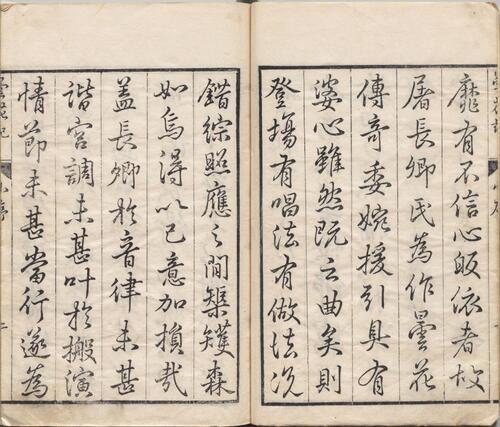 靡有不信心皈依者故
屠長卿氏為作曇花
傳奇委婉援引具有
婆心雖然既云曲矣則
登場有唱法有做法况
錯綜照應之間榘矱森
如烏得以己意加損哉
盖長卿於音律未甚
諧宮調未甚叶於搬演
情節未甚當行遂為